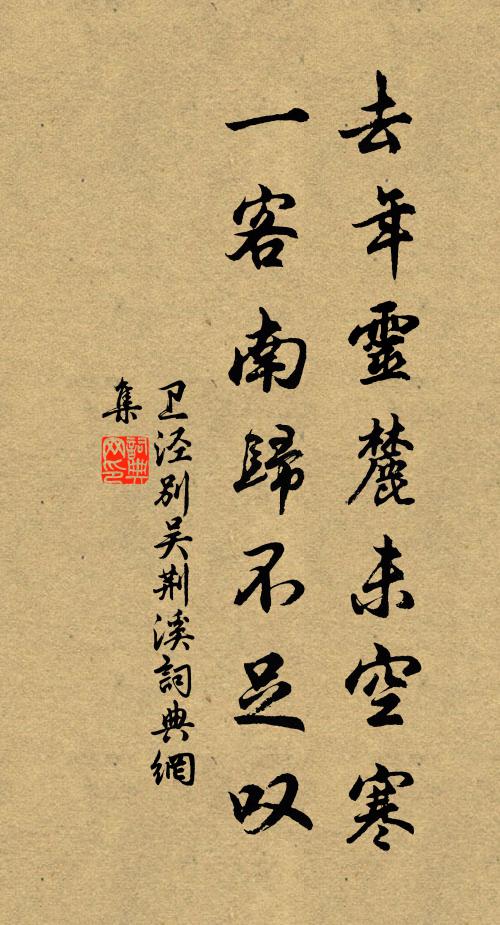 去年靈麓未空寒
一客南歸不足叹
卫泾别吴荆溪詞典網
集
詞典
网印